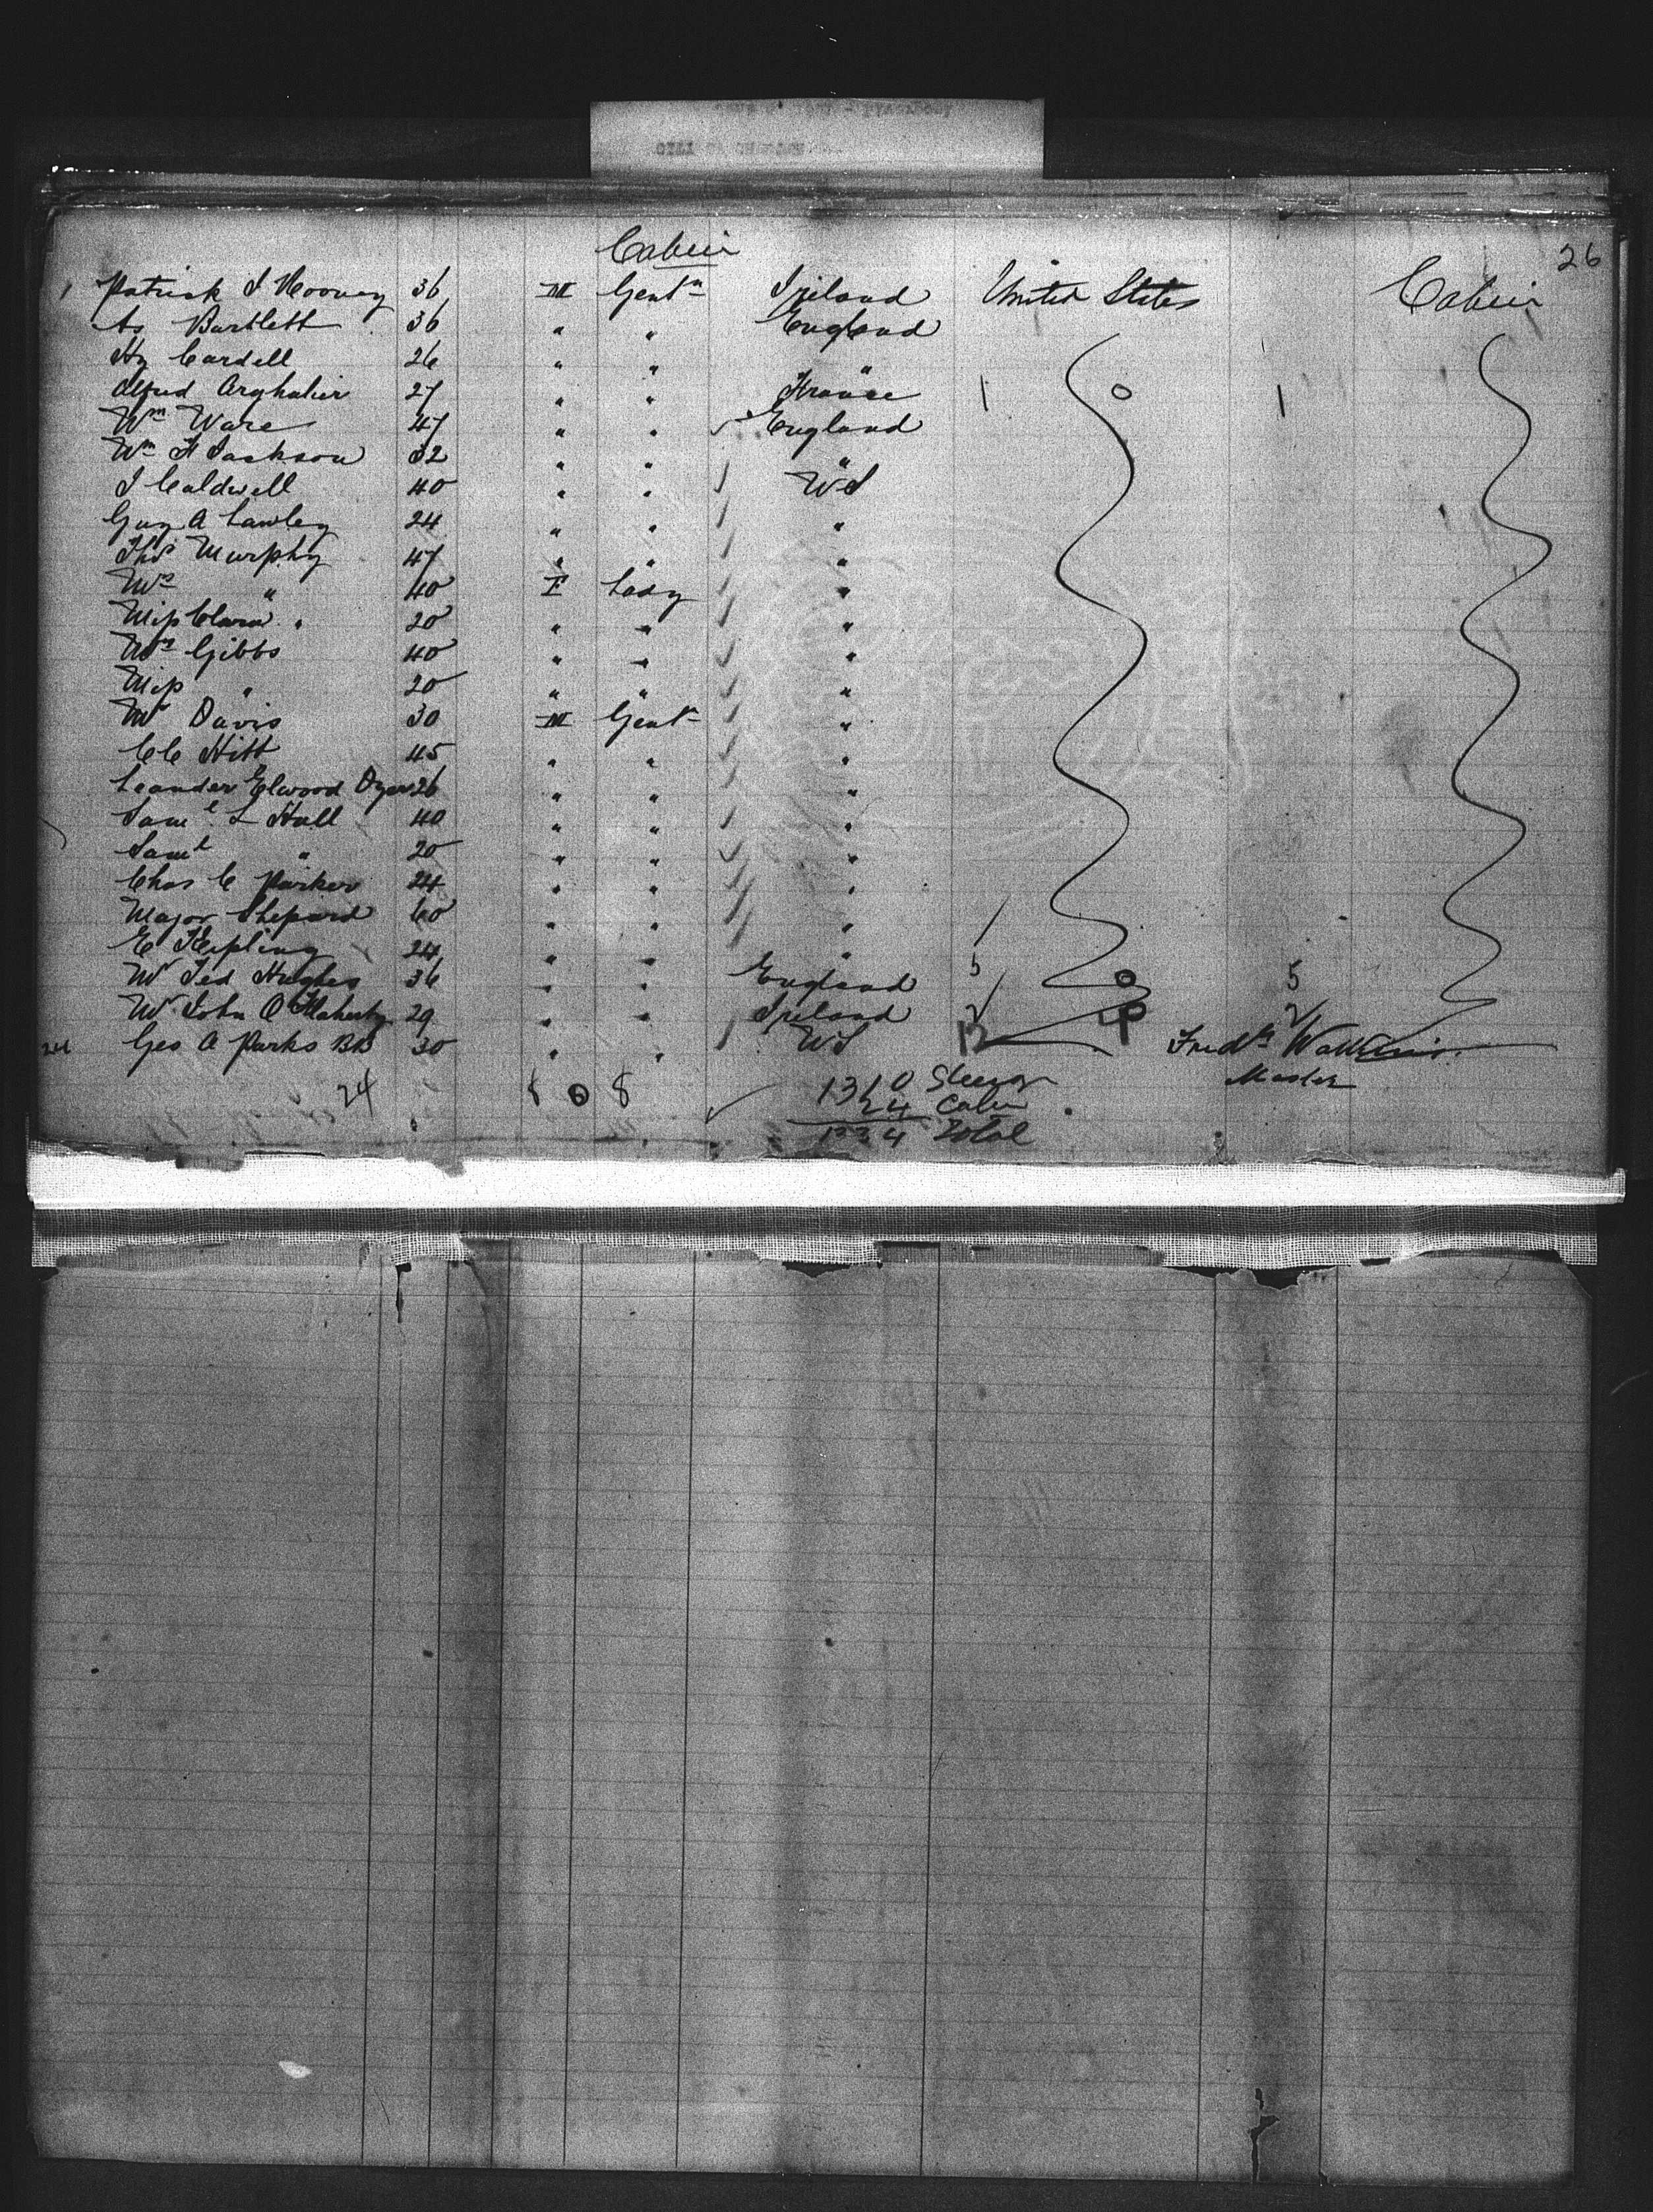 Cabin
26
1 Patrick J Mooney 36 M Gentn Ireland United States Cabin
As Bartlett 36 " " England
Hy Cardell 26 " " "
Alfred 27 " " France 1 0 1
Wm Ware 47 " " England
Wm H Jackson 32 " " "
J Caldwell 40 " " US
Guy A Lawley 24 " " "
Thos Murphy 47 " " "
Mrs " 40 F Lady "
Miss Clara " 20 " " "
Mrs Gibbs 40 " " "
Miss " 20 " " "
Mr Davis 30 M Gentn "
C C Hitt 45 " " "
Leander Elwood Dyer 26 " " "
Saml L Hall 40 " " "
Saml " 20 " " "
Chas C Parker 24 " " "
Major Shepard 60 " " "
E Kipling 24 " " "
W Ted Hughes 36 " " England 5 0 5
W John O Flaherty 29 " " Ireland 2 0 2
24 Geo A Parks BB 30 " " US Fredk Watkins
Master
24 8 1310
24 Cabin
Total